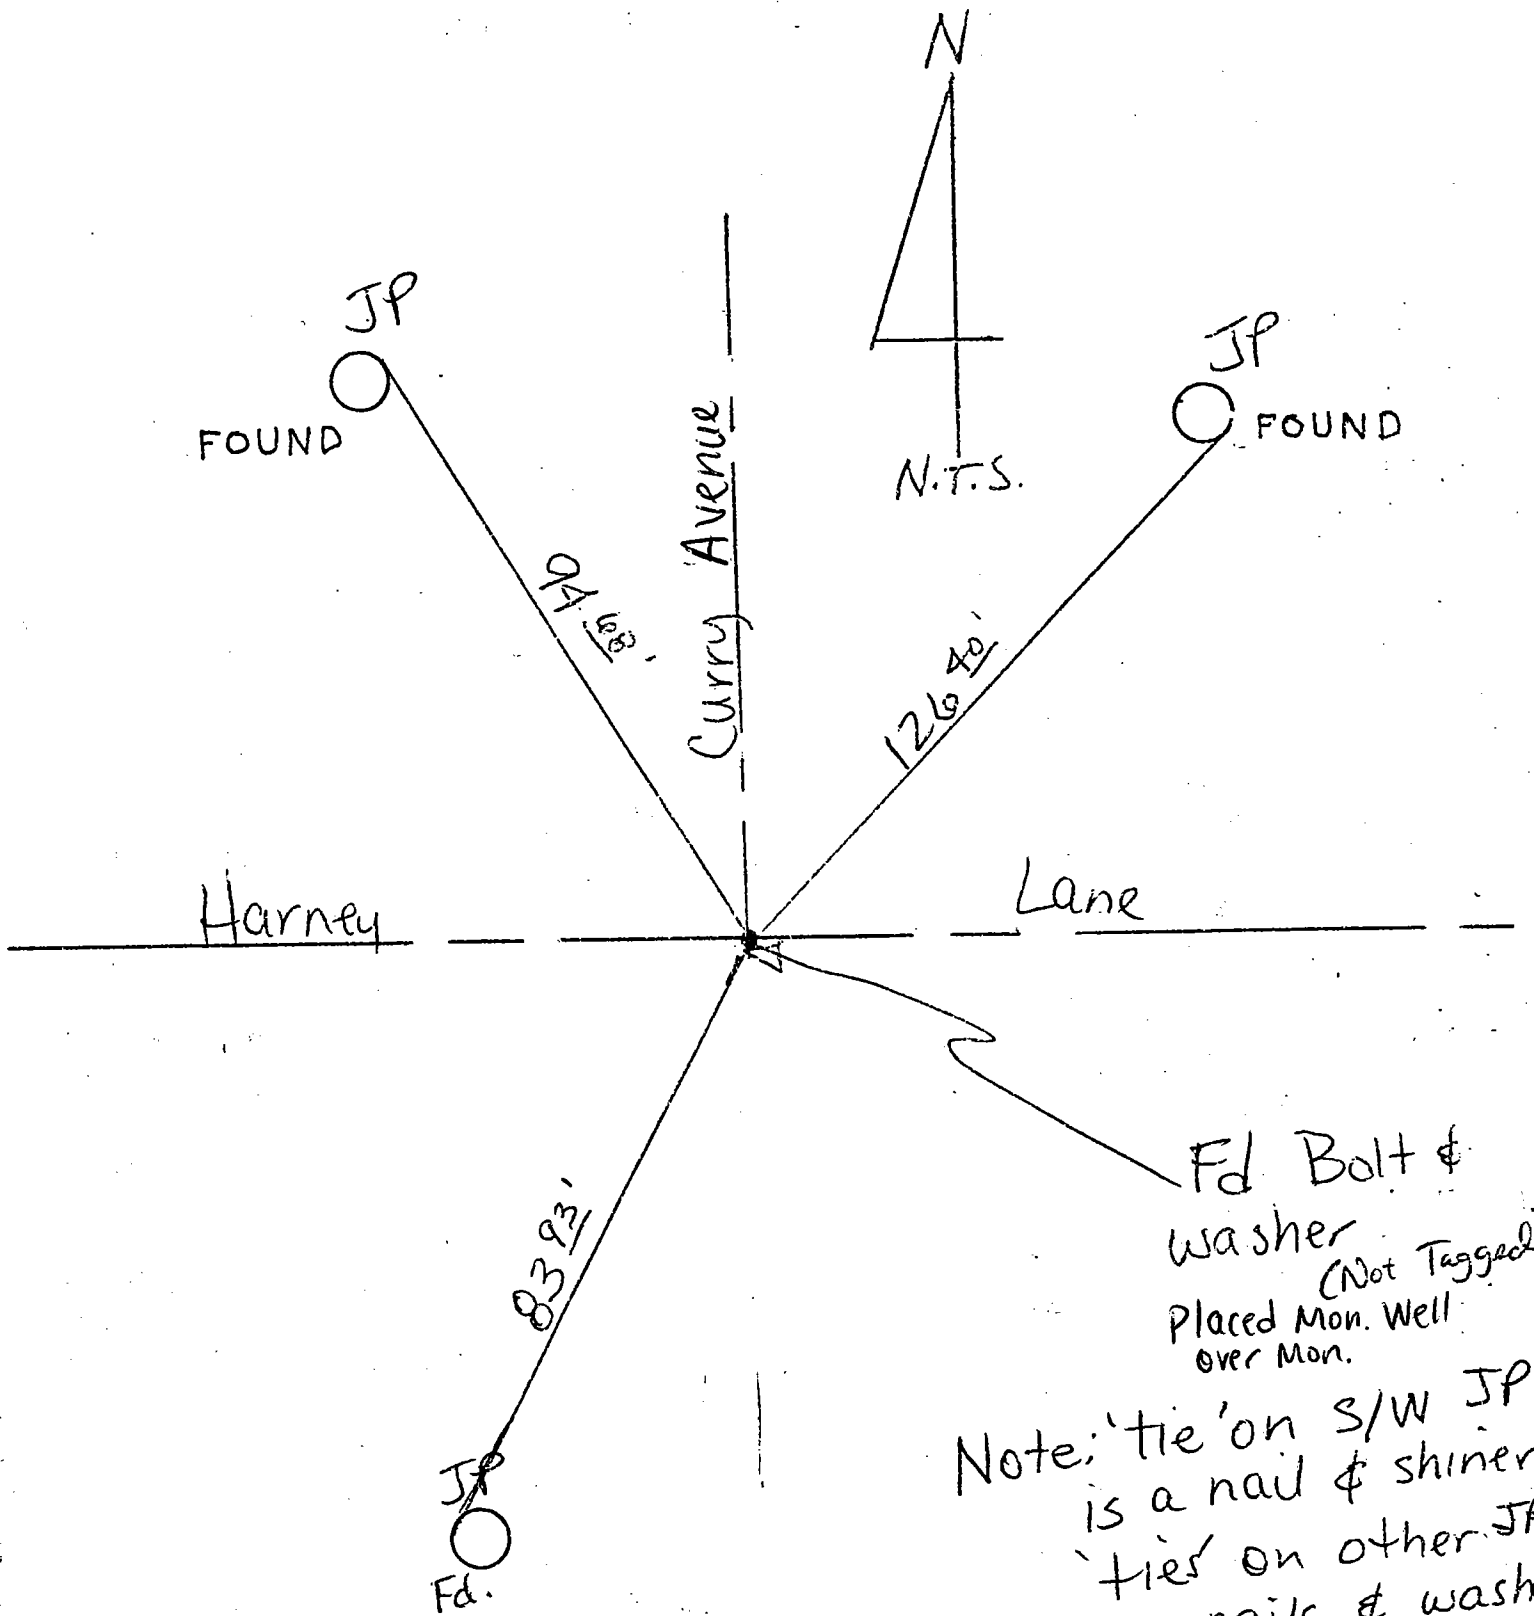 N
JP
FOUND
JP
FOUND
N.T.S.
Curry Avenue
94.68'
126 40'
Harney Lane
83 93'
Fd Bolt &
washer
(Not Tagged
Placed Mon. Well
over Mon.
JP
Fd.
Note: 'tie' on S/W JP
is a nail & shiner
'ties' on other
nails &